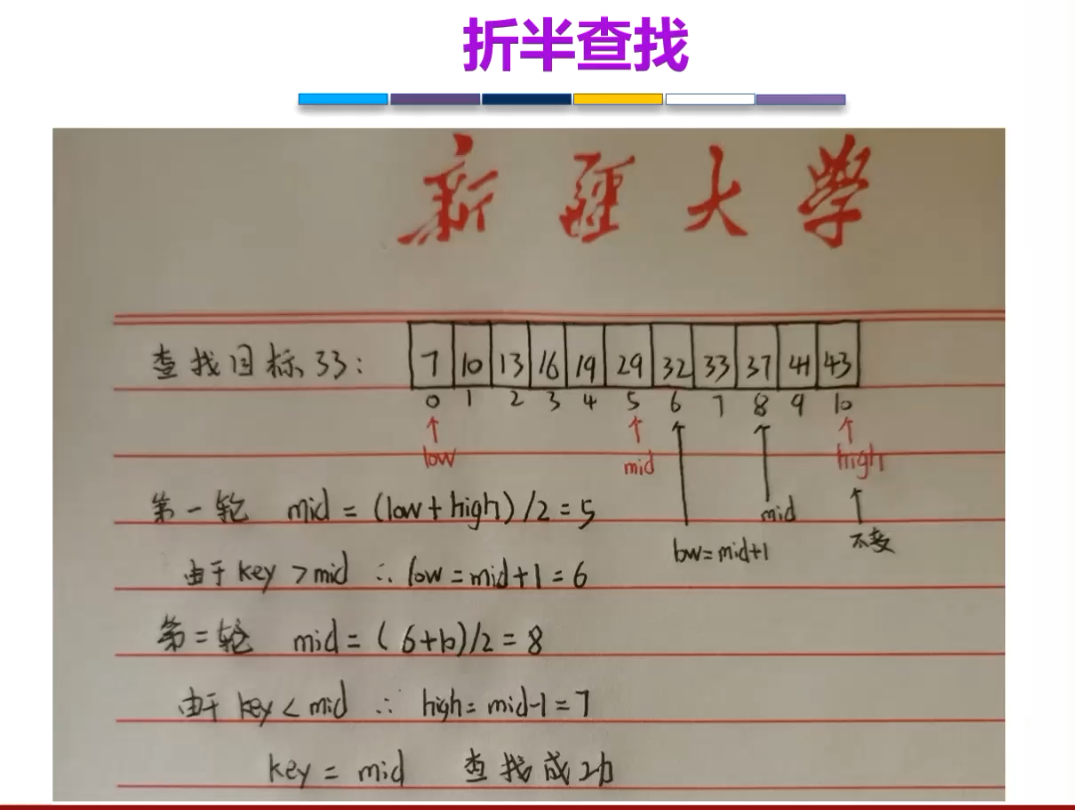 折半查找
新疆大学
查找目标33: 7 10 13 16 19 29 32 33 37 41 43
0 1 2 3 4 5 6 7 8 9 10
low mid high
第一轮 mid = (low + high) /2 = 5 mid
low = mid+1 不变
由于 key > mid ∴ low = mid + 1 = 6
第二轮 mid = ( 6+10)/2 = 8
由于 key < mid ∴ high = mid-1 = 7
key = mid 查找成功